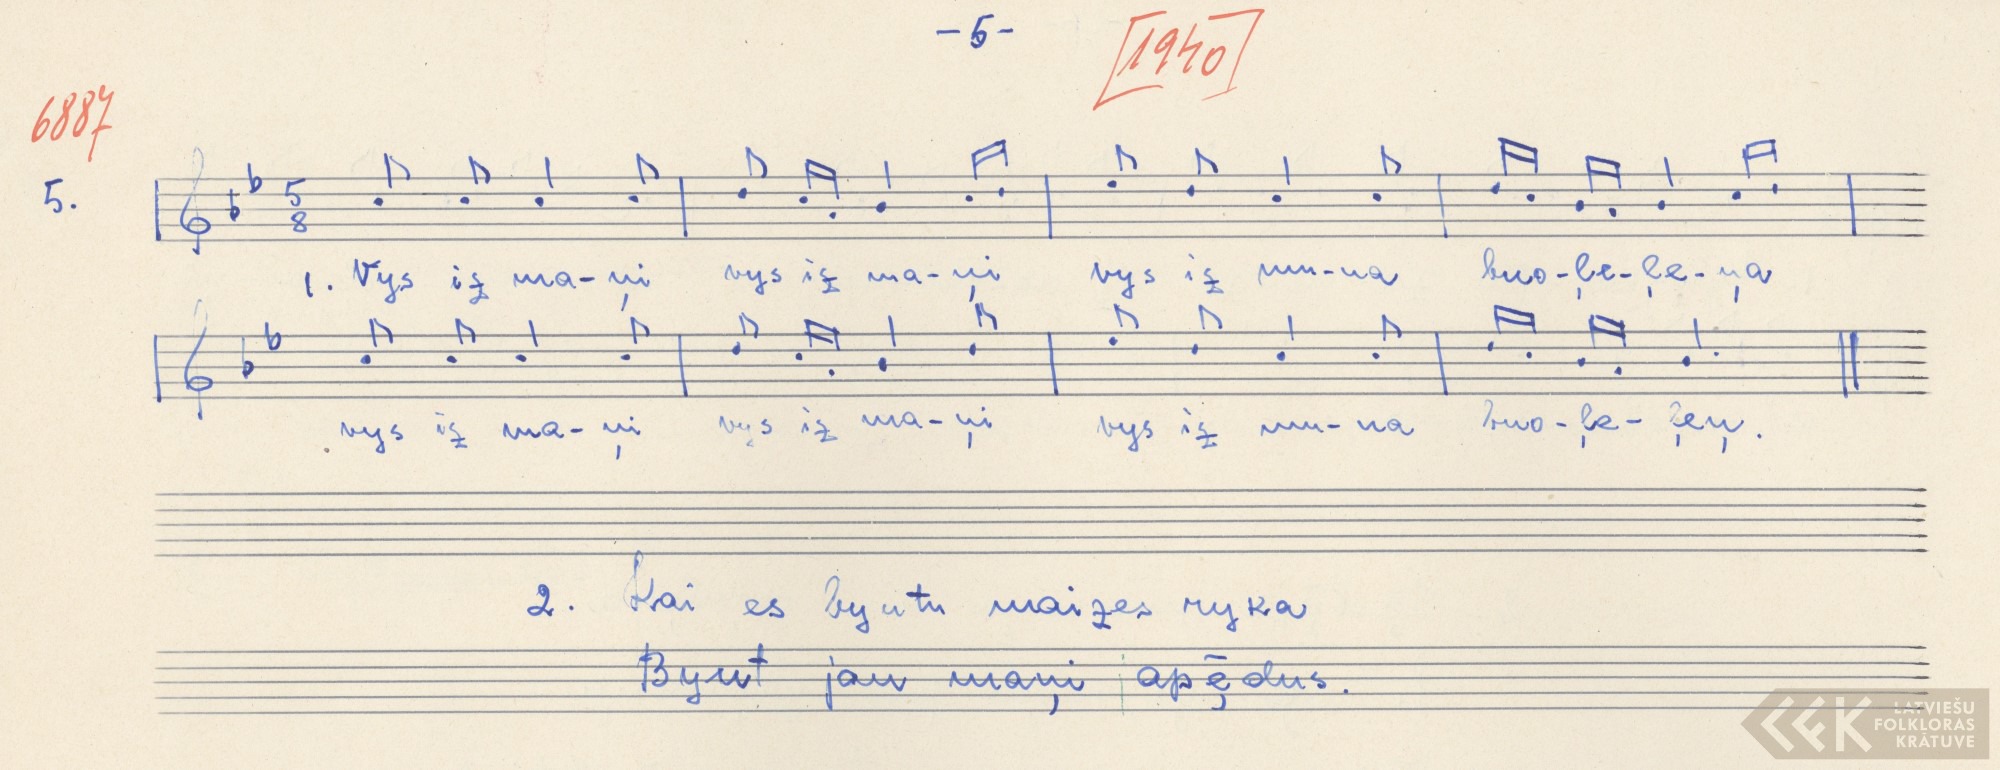 -5-
[1940]
6887
5.
5
8
1. Vys iz ma-ņi vys iz ma-ņi vys iz mu-na buo-ļe-ļe-ņa
vys iz ma-ņi vys iz ma-ņi vys iz mu-na buo-ļe-ļeņ.
2. Kai es byutu maizes ryka
Byut jau maņi apēdus.
LATVIEŠU
FOLKLORAS
KRĀTUVE